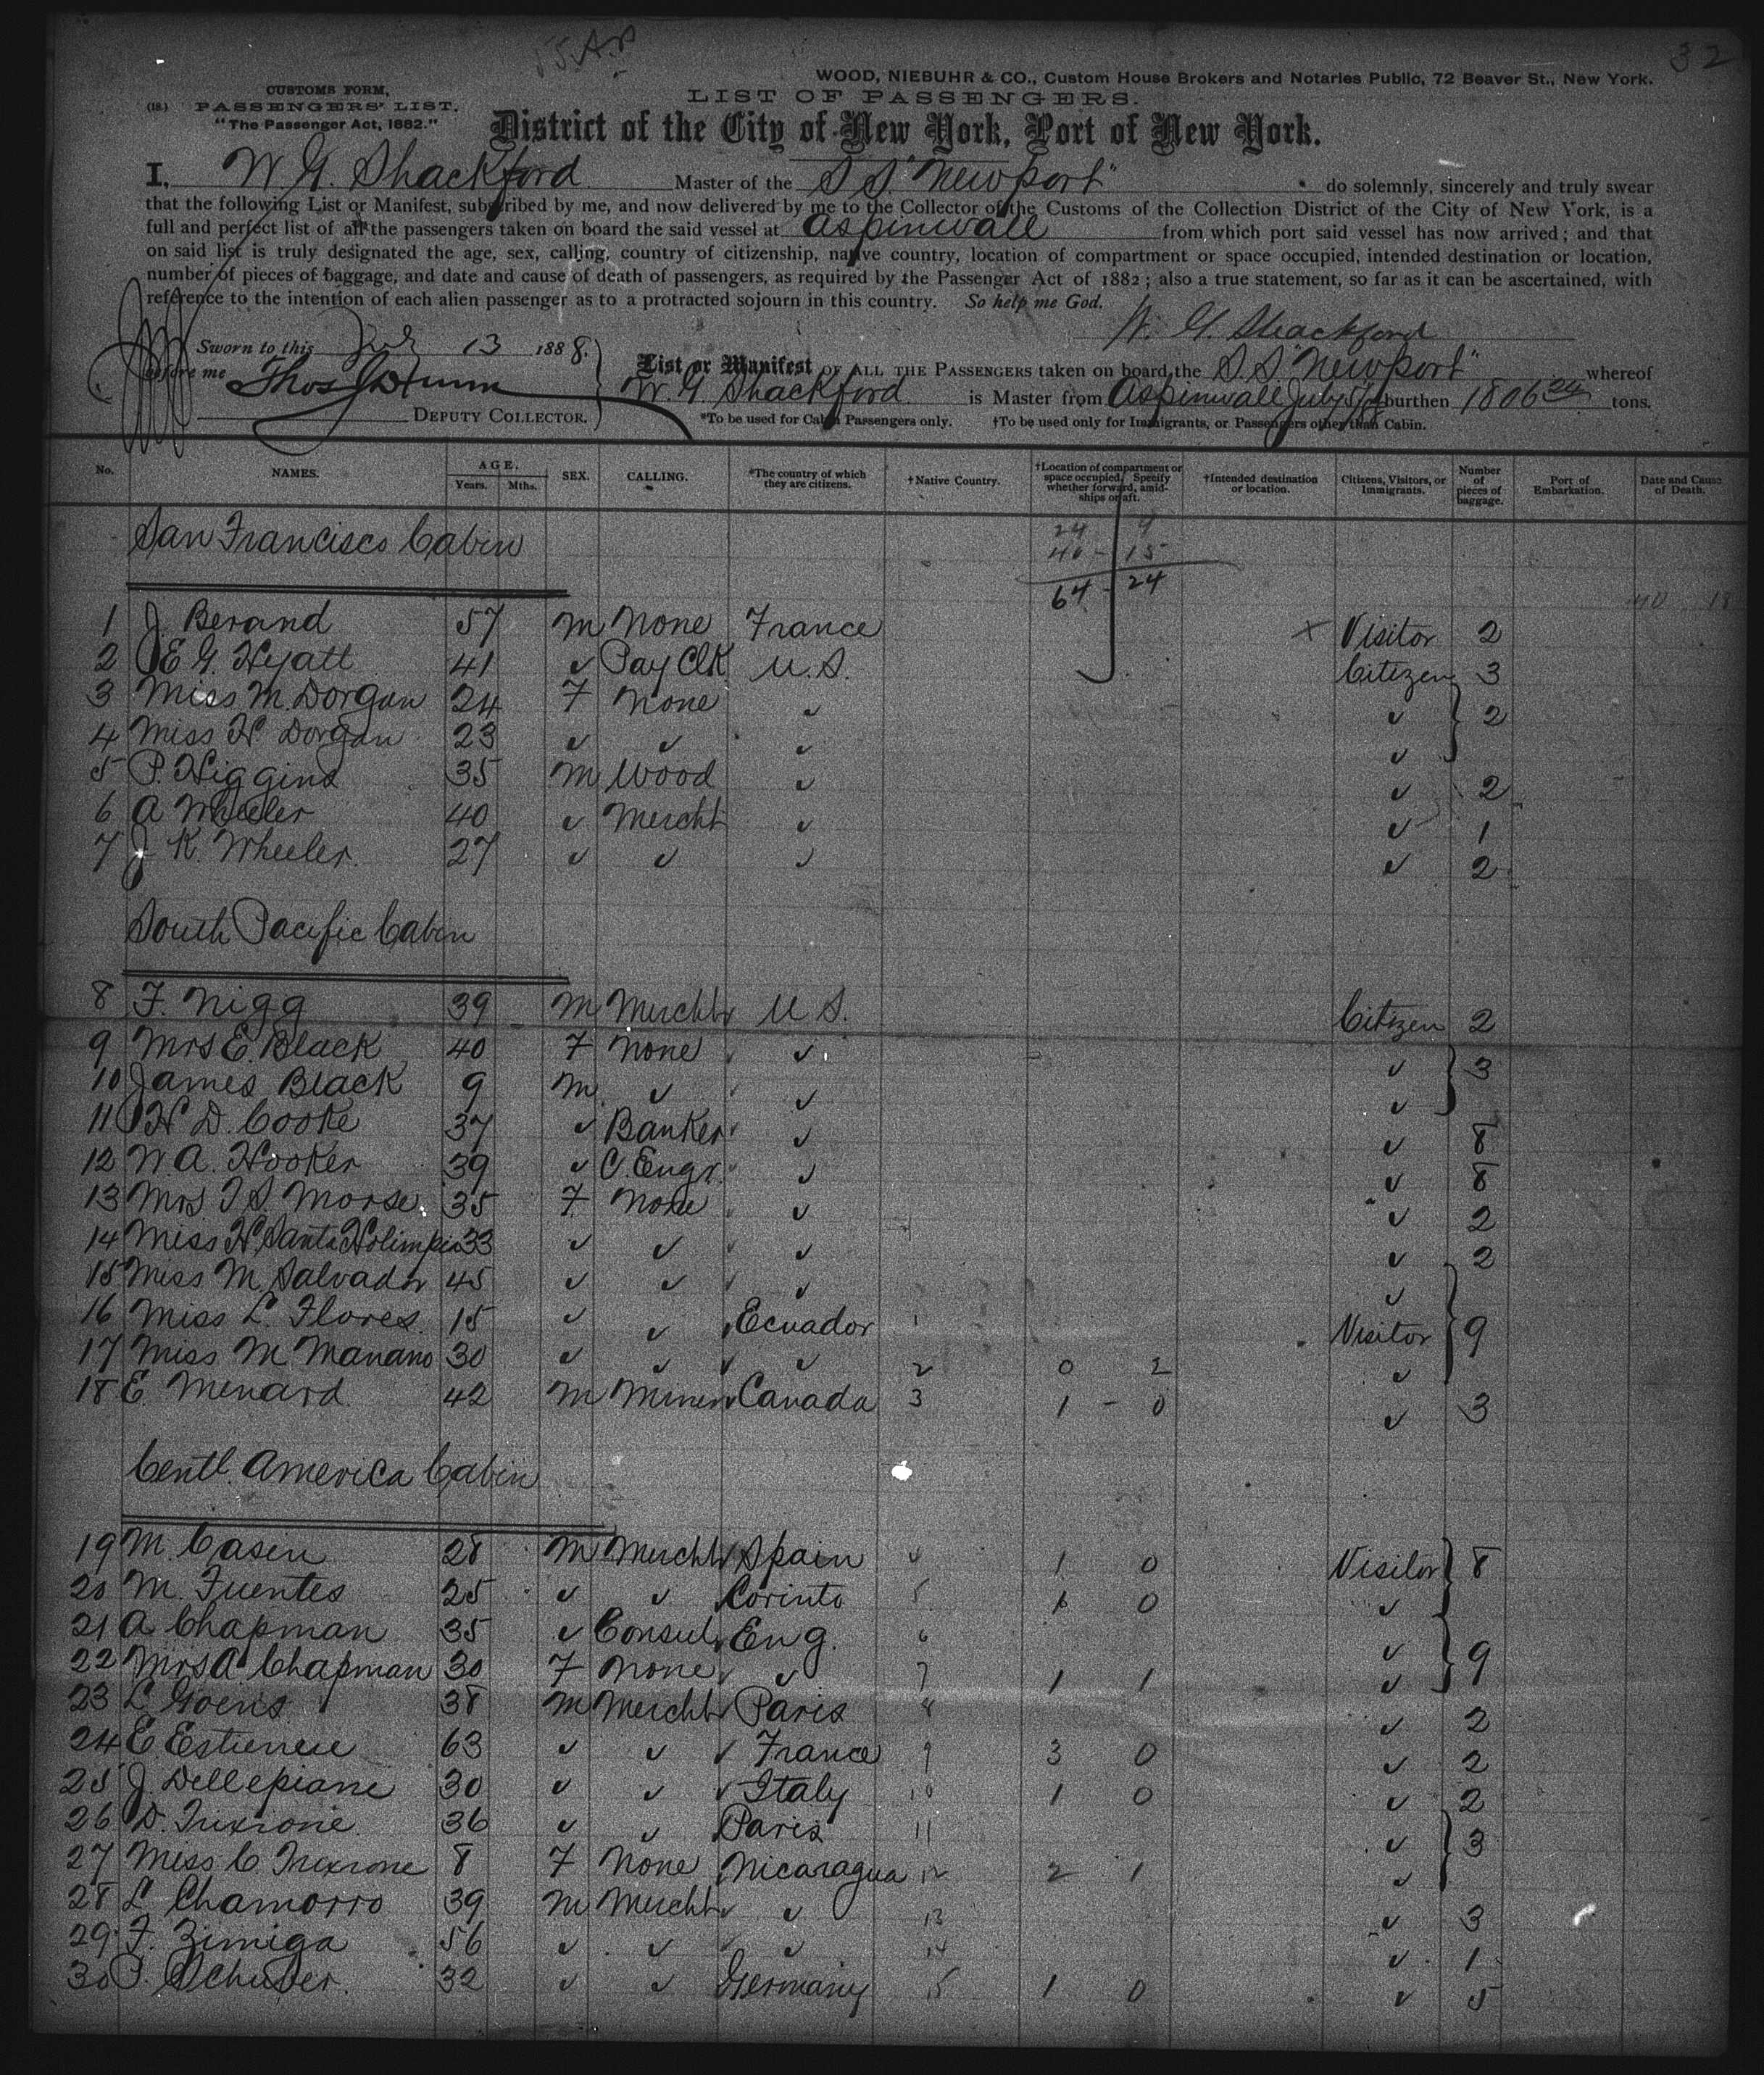 32
WOOD, NIEBUHR & CO., Custom House Brokers and Notaries Public, 72 Beaver St., New York.
CUSTOMS FORM,
(18.) PASSENGERS' LIST.
"The Passenger Act, 1882."
LIST OF PASSENGERS.
District of the City of New York, Port of New York.
I, W. G. Shackford Master of the S S. "Newport" do solemnly, sincerely and truly swear
that the following List or Manifest, subscribed by me, and now delivered by me to the Collector of the Customs of the Collection District of the City of New York, is a
full and perfect list of all the passengers taken on board the said vessel at Aspinwall from which port said vessel has now arrived; and that
on said list is truly designated the age, sex, calling, country of citizenship, native country, location of compartment or space occupied, intended destination or location,
number of pieces of baggage, and date and cause of death of passengers, as required by the Passenger Act of 1882; also a true statement, so far as it can be ascertained, with
reference to the intention of each alien passenger as to a protracted sojourn in this country. So help me God.
W. G. Shackford
Sworn to this July 13 1888.
before me Thos J Dunn
DEPUTY COLLECTOR.
List or Manifest OF ALL THE PASSENGERS taken on board the S. S "Newport" whereof
W. G. Shackford is Master from Aspinwall July burthen 1806 24 tons.
*To be used for Cabin Passengers only. †To be used only for Immigrants, or Passengers other than Cabin.
No. NAMES. AGE. Years. Mths. SEX. CALLING. *The country of which they are citizens. †Native Country. †Location of compartment or space occupied. Specify whether forward, amidships or aft. †Intended destination or location. Citizens, Visitors, or Immigrants. Number of pieces of baggage. Port of Embarkation. Date and Cause of Death.
24 9
40 - 15
64 - 24
San Francisco Cabin
1 J. Berand 57 M None France x Visitor 2
2 E G. Hyatt 41 ✓ Pay Clk U. S. Citizen 3
3 Miss M. Dorgan 24 F None ✓ ✓ } 2
4 Miss H Dorgan 23 ✓ ✓ ✓ ✓
5 P. Higgins 35 M Wood ✓ ✓ 2
6 A Wheeler 40 ✓ Mercht ✓ ✓ 1
7 J K. Wheeler 27 ✓ ✓ ✓ ✓ 2
South Pacific Cabin
8 F. Nigg 39 M Mercht U S. Citizen 2
9 Mrs E. Black 40 F None ✓ ✓ } 3
10 James Black 9 M ✓ ✓ ✓
11 H D. Cooke 37 ✓ Banker ✓ ✓ 8
12 W A. Hooker 39 ✓ C. Engr. ✓ ✓ 8
13 Mrs I. S. Morse 35 F None ✓ ✓ 2
14 Miss H. Santa Holimpia 33 ✓ ✓ ✓ ✓ 2
15 Miss M. Salvador 45 ✓ ✓ ✓ ✓
16 Miss L. Flores 15 ✓ ✓ Ecuador 1 Visitor } 9
17 Miss M Manano 30 ✓ ✓ ✓ 2 0 2 ✓
18 E. Menard 42 M Miner Canada 3 1 - 0 ✓ 3
Centl. America Cabin
19 M. Casen 28 M Mercht Spain 4 1 0 Visitor } 8
20 M. Fuentes 25 ✓ ✓ Corinto 5 1 0 ✓
21 A Chapman 35 ✓ Consul Eng. 6 ✓ } 9
22 Mrs A Chapman 30 F None ✓ 7 1 1 ✓
23 L Goens 38 M Mercht Paris 8 ✓ 2
24 E Estienne 63 ✓ ✓ France 9 3 0 ✓ 2
25 J Dellepiane 30 ✓ ✓ Italy 10 1 0 ✓ 2
26 D. 36 ✓ ✓ Paris 11 ✓ } 3
27 Miss C. 8 F None Nicaragua 12 2 1 ✓
28 L Chamorro 39 M Mercht ✓ 13 ✓ 3
29 F. Zimiga 56 ✓ ✓ ✓ 14 ✓ 1
30 P. Schuber 32 ✓ ✓ Germany 15 1 0 ✓ 5